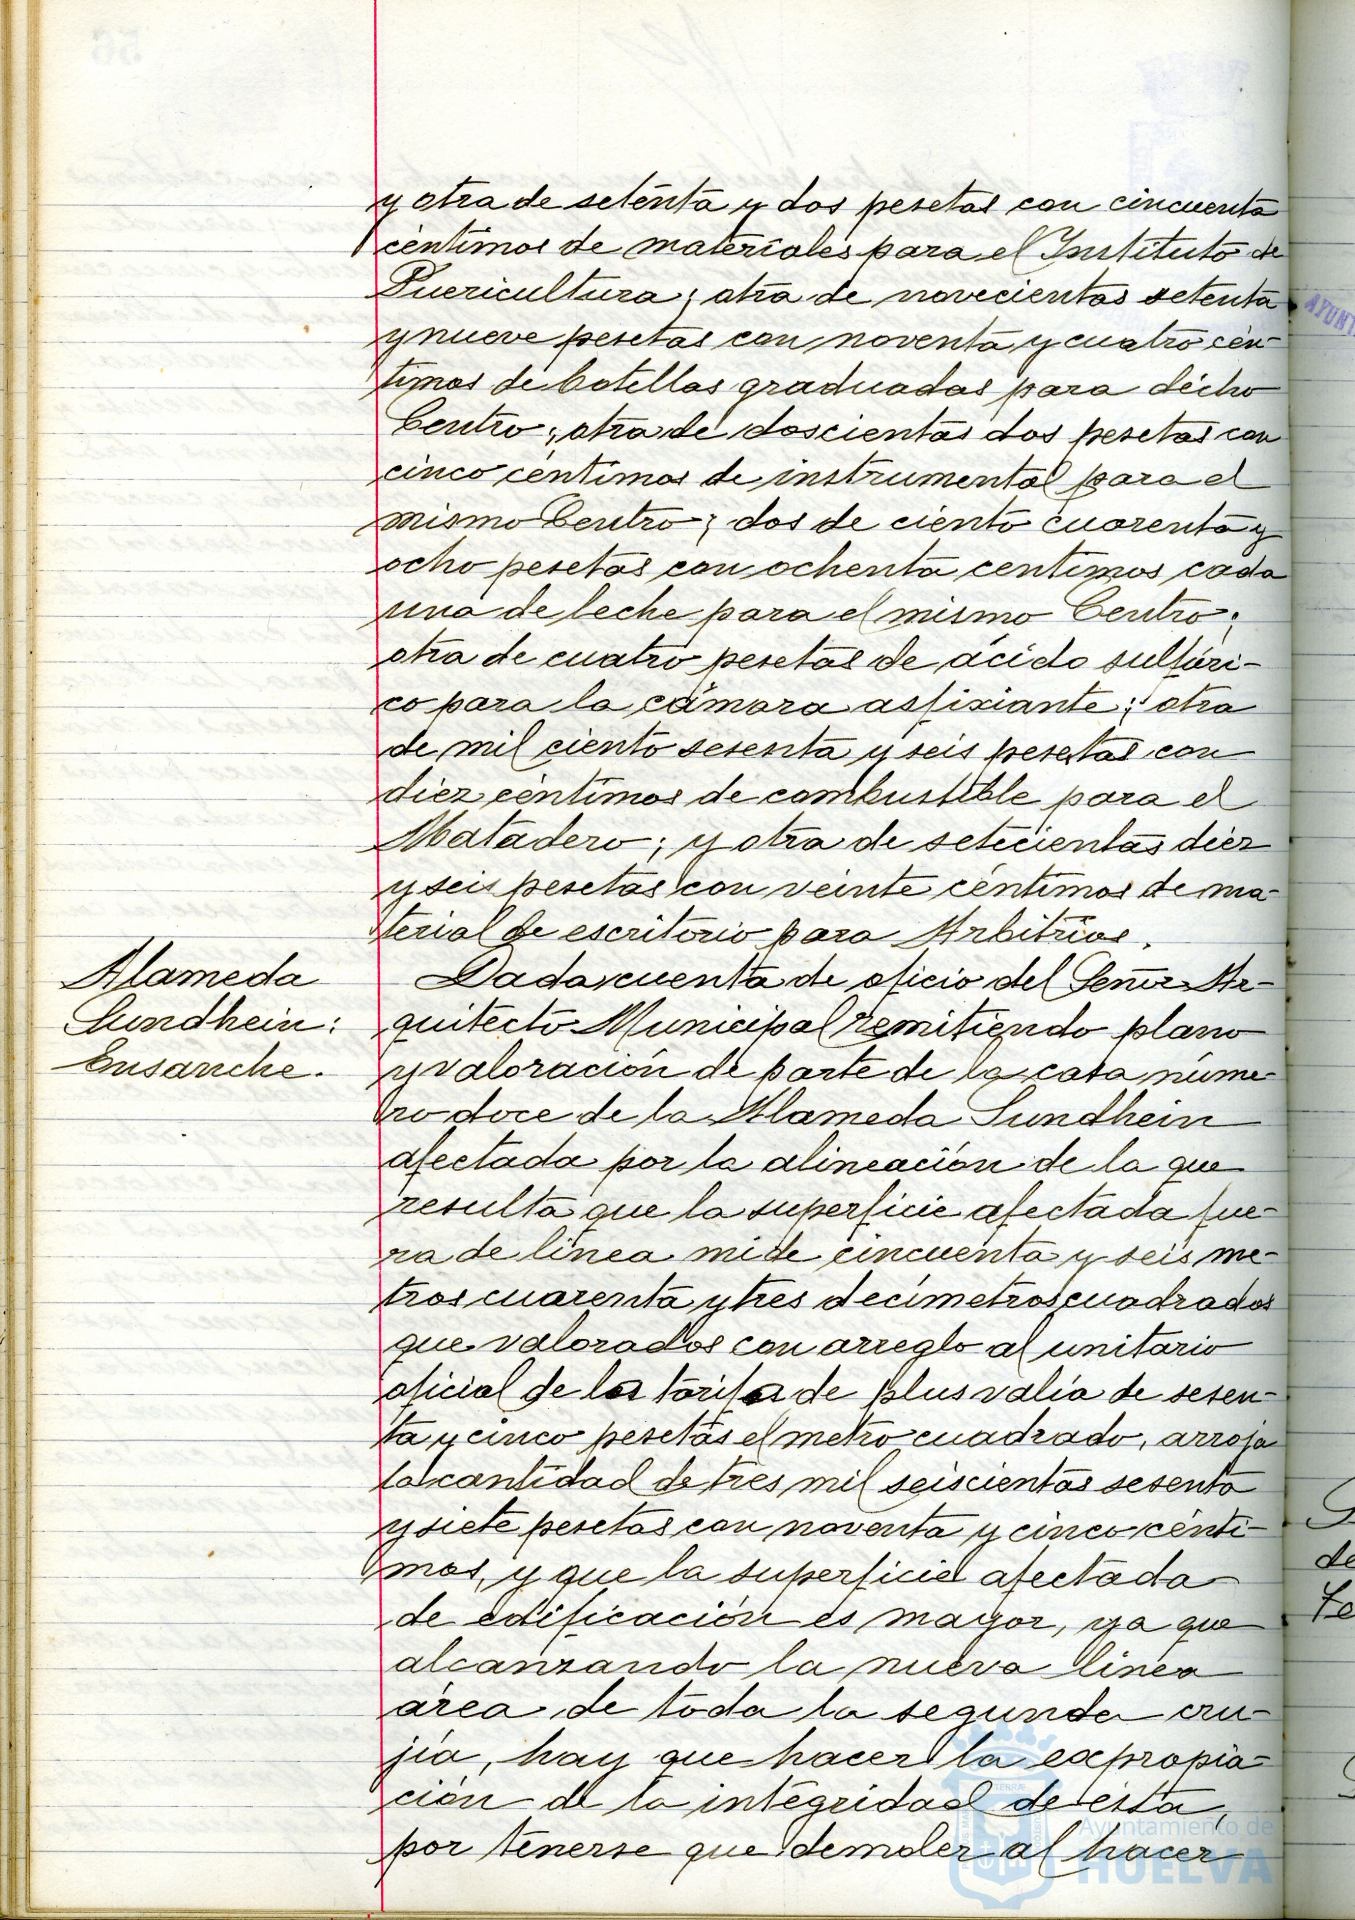 y otra de setenta y dos pesetas con cincuenta
céntimos de materiales para el Instituto de
Puericultura; otra de novecientas setenta
y nueve pesetas con noventa y cuatro cén-
timos de botellas graduadas para dicho
Centro; otra de doscientas dos pesetas con
cinco céntimos de instrumental para el
mismo Centro; dos de ciento cuarenta y
ocho pesetas con ochenta centimos cada
una de leche para el mismo Centro;
otra de cuatro pesetas de ácido sulfúri-
co para la cámara asfixiante; otra
de mil ciento sesenta y seis pesetas con
diez céntimos de combustible para el
Matadero; y otra de setecientas diez
y seis pesetas con veinte céntimos de ma-
terial de escritorio para Arbitrios.
Alameda
Sundhein:
Ensanche.
Dada cuenta de oficio del Señor Ar-
quitecto Municipal remitiendo plano
y valoración de parte de la casa núme-
ro doce de la Alameda Sundhein
afectada por la alineación de la que
resulta que la superficie afectada fue-
ra de línea mide cincuenta y seis me-
tros cuarenta y tres decímetros cuadrados
que valorados con arreglo al unitario
oficial de la tarifa de plus valía de sesen-
ta y cinco pesetas el metro cuadrado, arroja
la cantidad de tres mil seiscientas sesenta
y siete pesetas con noventa y cinco cénti-
mos, y que la superficie afectada
de edificación es mayor, ya que
alcanzando la nueva línea
área de toda la segunda cru-
jía, hay que hacer la expropia-
ción de la integridad de ésta,
por tenerse que demoler al hacer
Ayuntamiento de
HUELVA